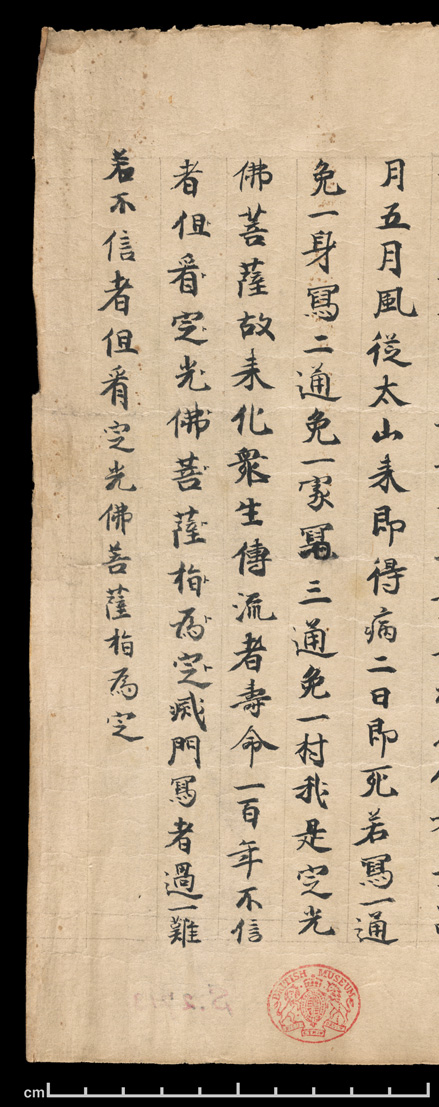 月五月風從太山来即得病二日即死若寫一通
免一身寫二通免一家寫三通免一村我是㝎光
佛菩薩故来化衆生傳流者壽命一百年不信
者但看㝎光佛菩薩指為㝎滅門寫者過一難
若不信者但看㝎光佛菩薩指為㝎
BRITISH MUSEUM
cm